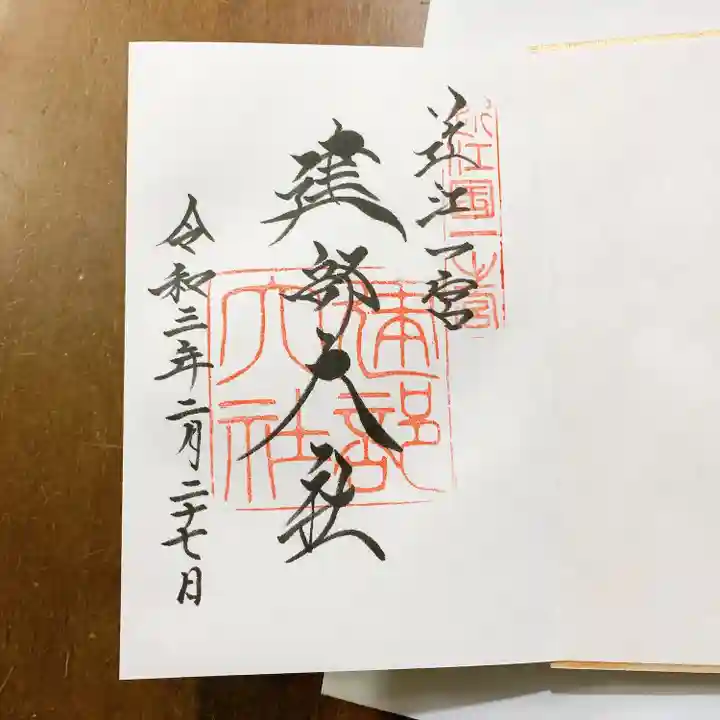 近江一宮
近江国一之宮
建部大社
建部大社
令和三年二月二十七日